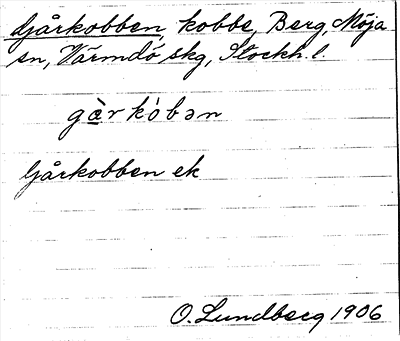 Gjårkobben, kobbe, Berg, Möja
sn, Värmdö skg, Stockh. l.
gàrkòbən
Gjårkobben ek
O. Lundberg 1906